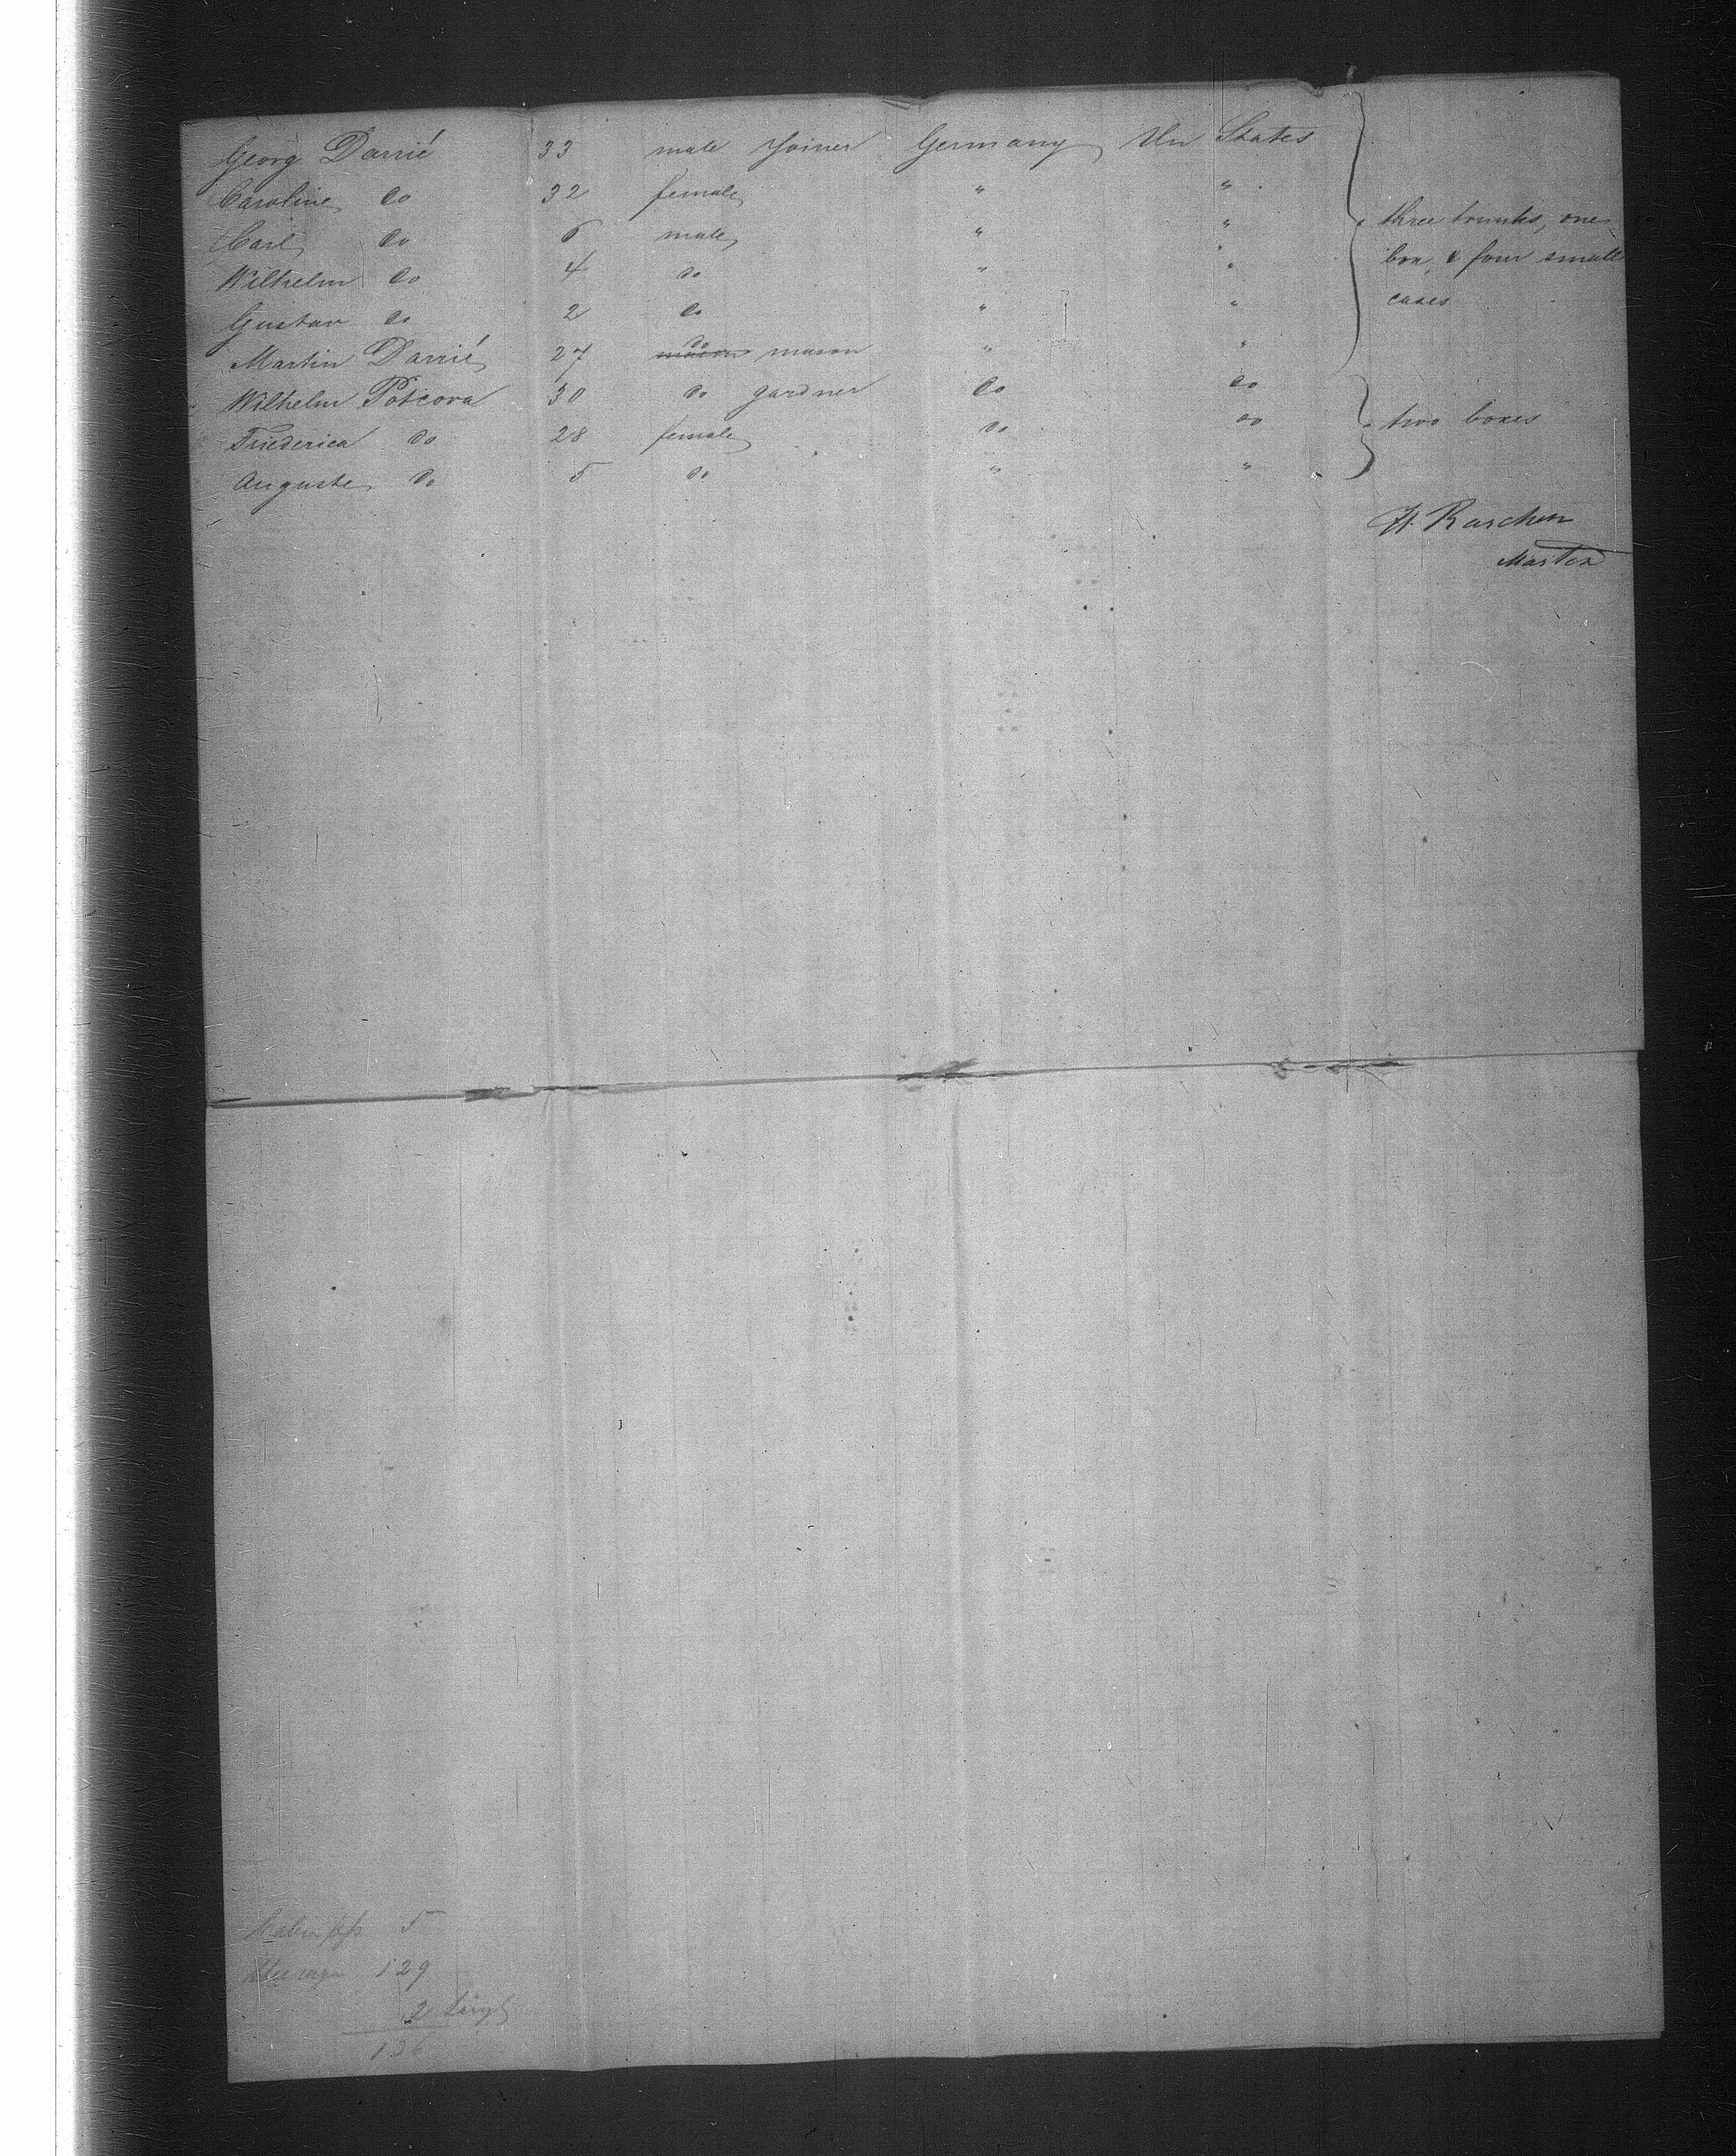 Georg Darrié 33 male Joiner Germany Un States
Caroline do 32 female " "
Carl do 6 male " " three trunks, one
Wilhelm do 4 do " " box, & four small
Gustav do 2 do " " cases
Martin Darrié 27 do mason mason " "
Wilhelm Potcova 30 do gardner do do
Friederica do 28 female do do two boxes
Auguste do 5 do " "
H. Raschen
Master
5
Steerage 129
2
136